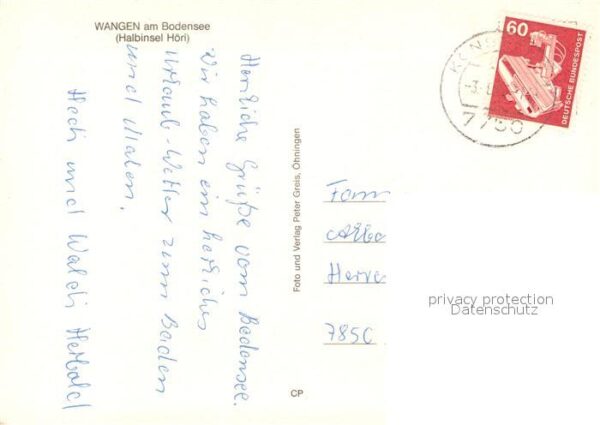 WANGEN am Bodensee
(Halbinsel Höri)
Herzliche Grüße vom Bodensee.
Wir haben ein herrliches
Urlaub-Wetter zum Baden
und Malen.
Hech und Waldi Herbold
Foto und Verlag Peter Greis, Öhningen
CP
60
DEUTSCHE BUNDESPOST
KONS
7750
Fam
Herre
7850
privacy protection
Datenschutz